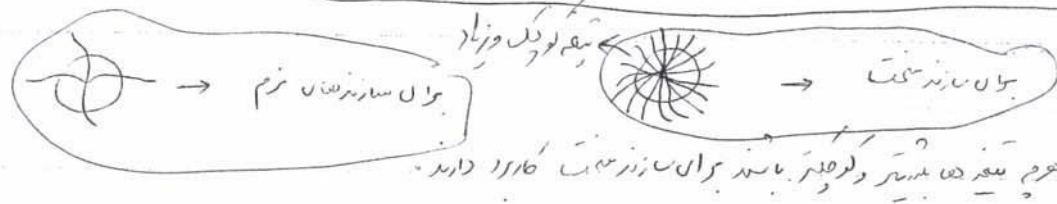 تیغه کوچک و زیاد
برای سازند سخت
برای سازندهای نرم
هرچه تیغه ها بیشتر و کوچکتر باشند برای سازند سخت کاربرد دارند.